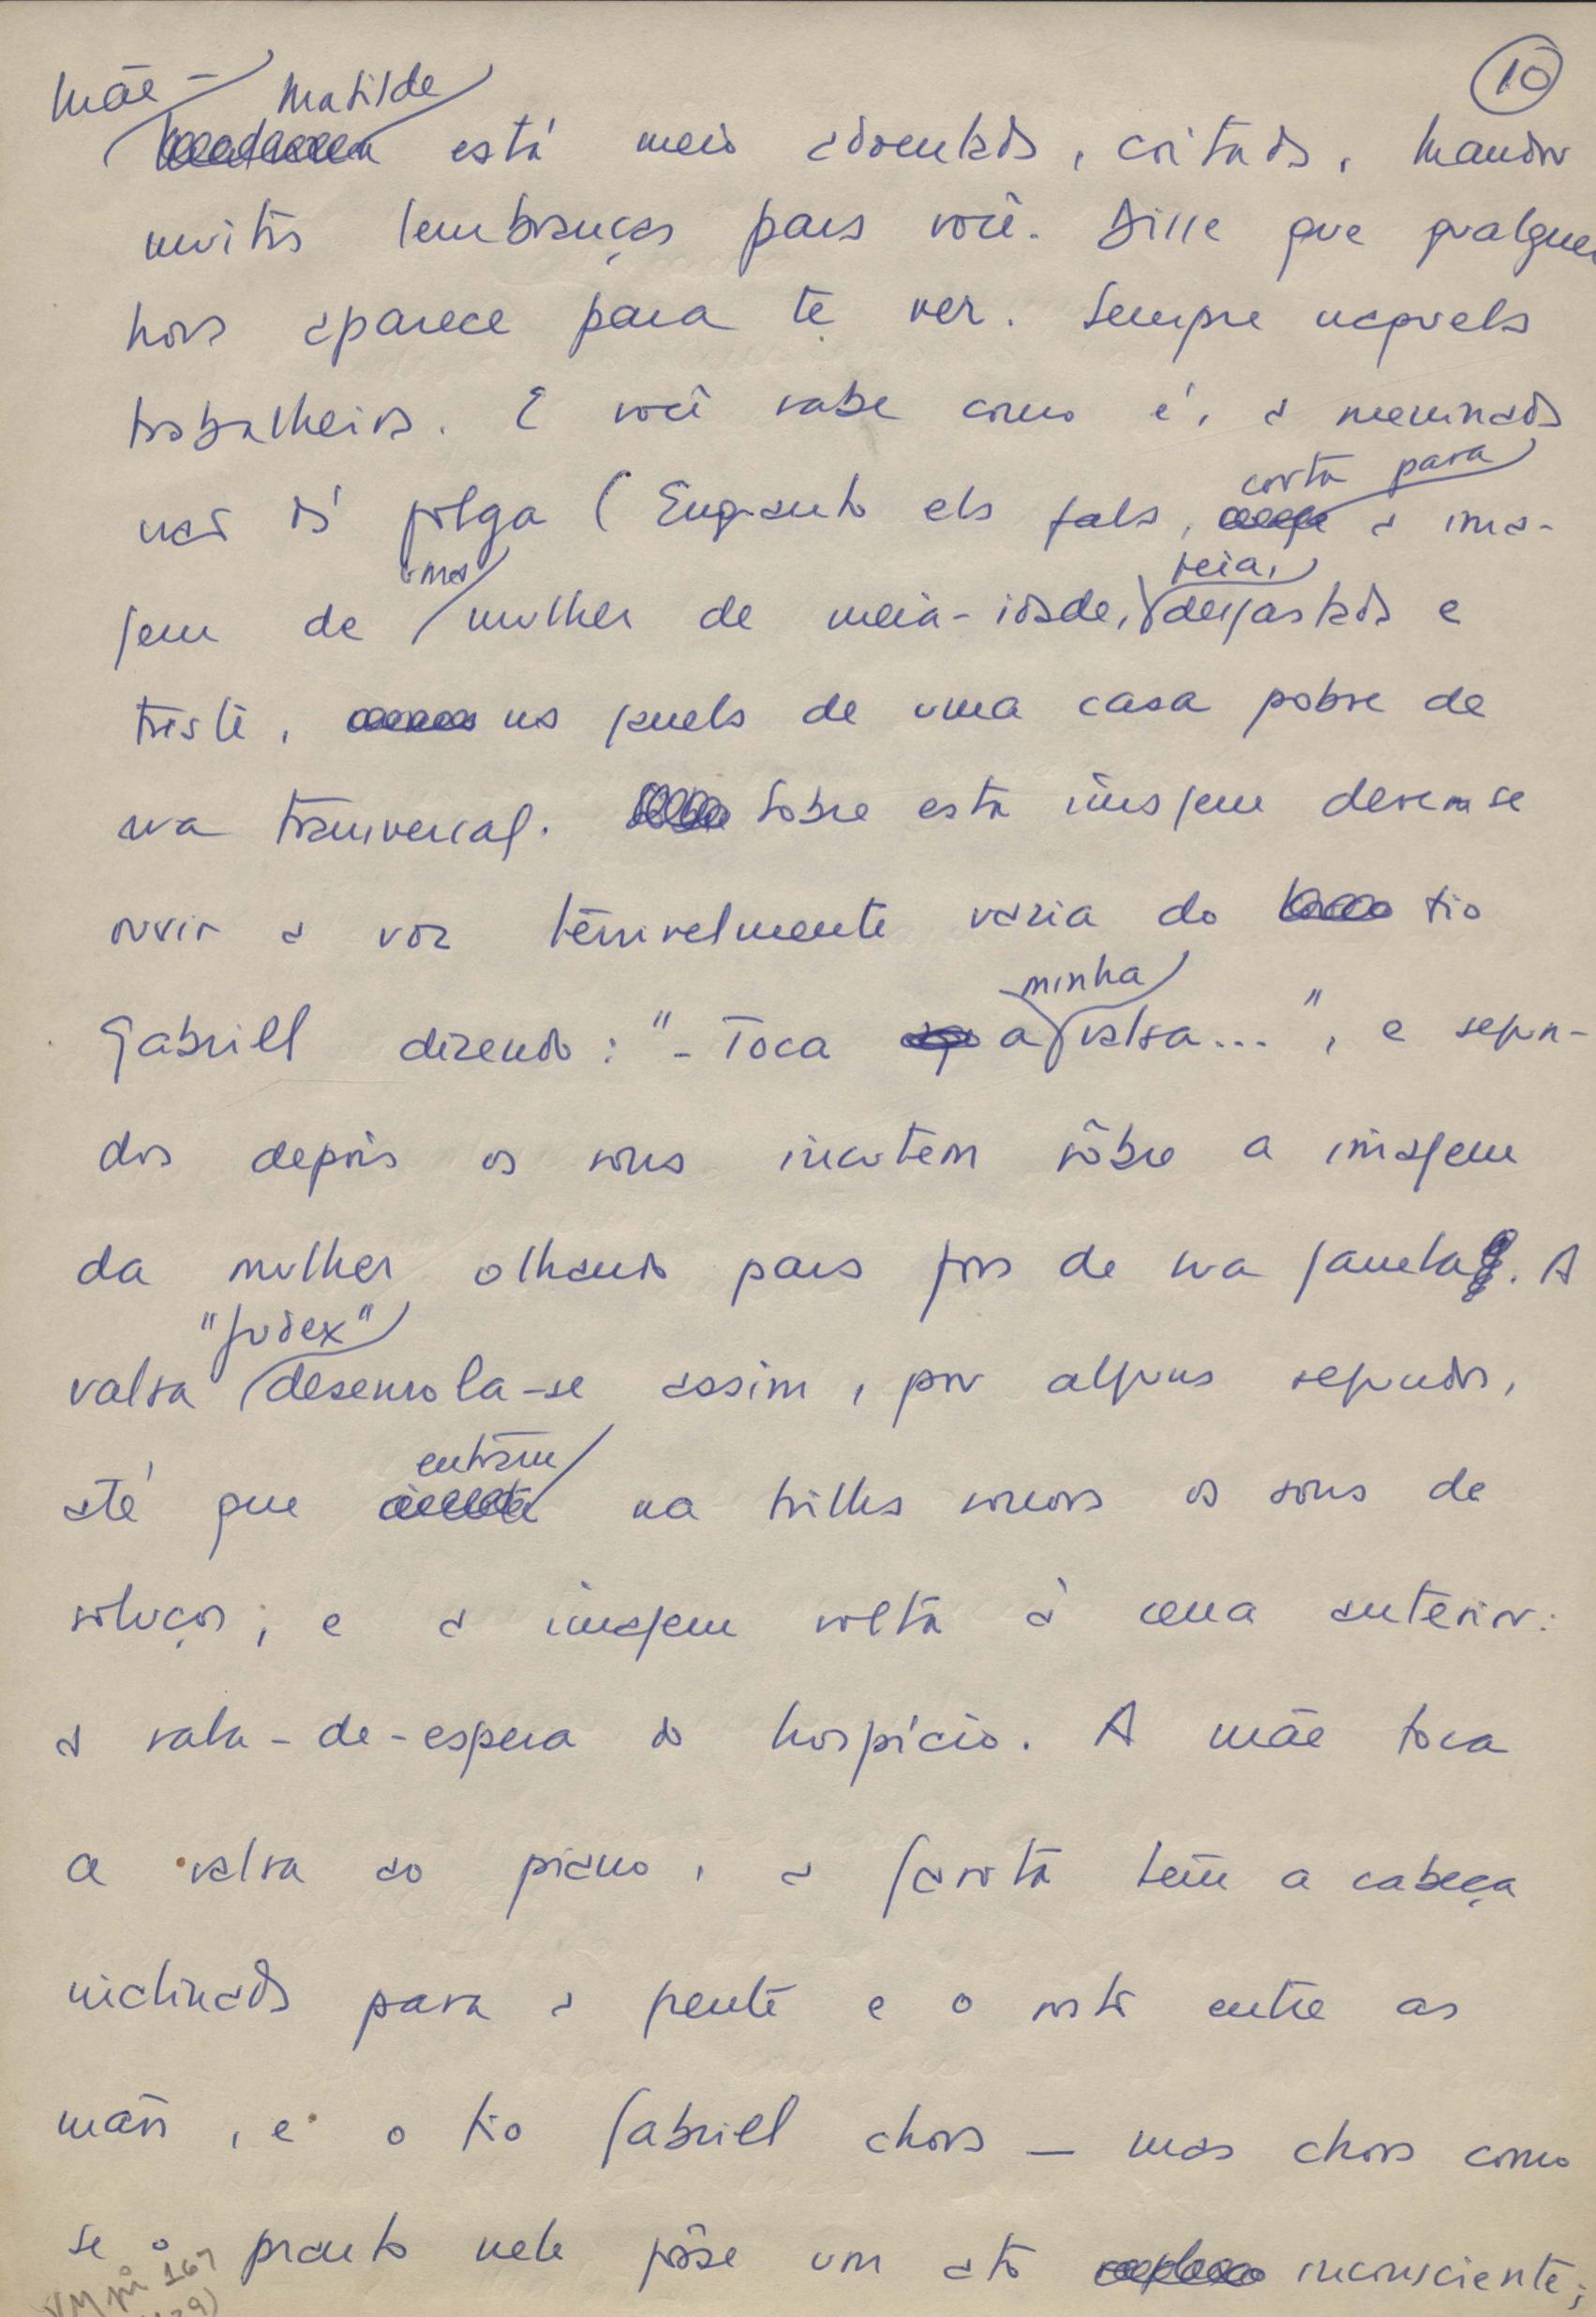 10
Mãe - Matilde
está meio adoentada, coitada, mandou
muitas lembranças para você. Disse que qualquer
hora aparece para te ver. Sempre naquela
trabalheira. E você sabe como é, a meninada
não dá folga (Enquanto ela fala, corta para a ima-
gem de uma mulher de meia-idade, feia, desgastada e
triste, na janela de uma casa pobre de
rua transversal. Sobre esta imagem devem se
ouvir a voz terrivelmente vazia do tio
Gabriel dizendo: "- Toca a minha valsa...", e segun-
dos depois os sons incutem sôbre a imagem
da mulher olhando para fora de sua janela. A
valsa "Judex" desenrola-se assim, por alguns segundos,
até que entram na trilha sonora os sons de
soluços; e a imagem volta à cena anterior:
a sala-de-espera do hospício. A mãe toca
a valsa ao piano, a garota tem a cabeça
inclinada para a frente e o rosto entre as
mãos, e o tio Gabriel chora — mas chora como
se o pranto nele fôsse um ato inconsciente;
VM pi 167